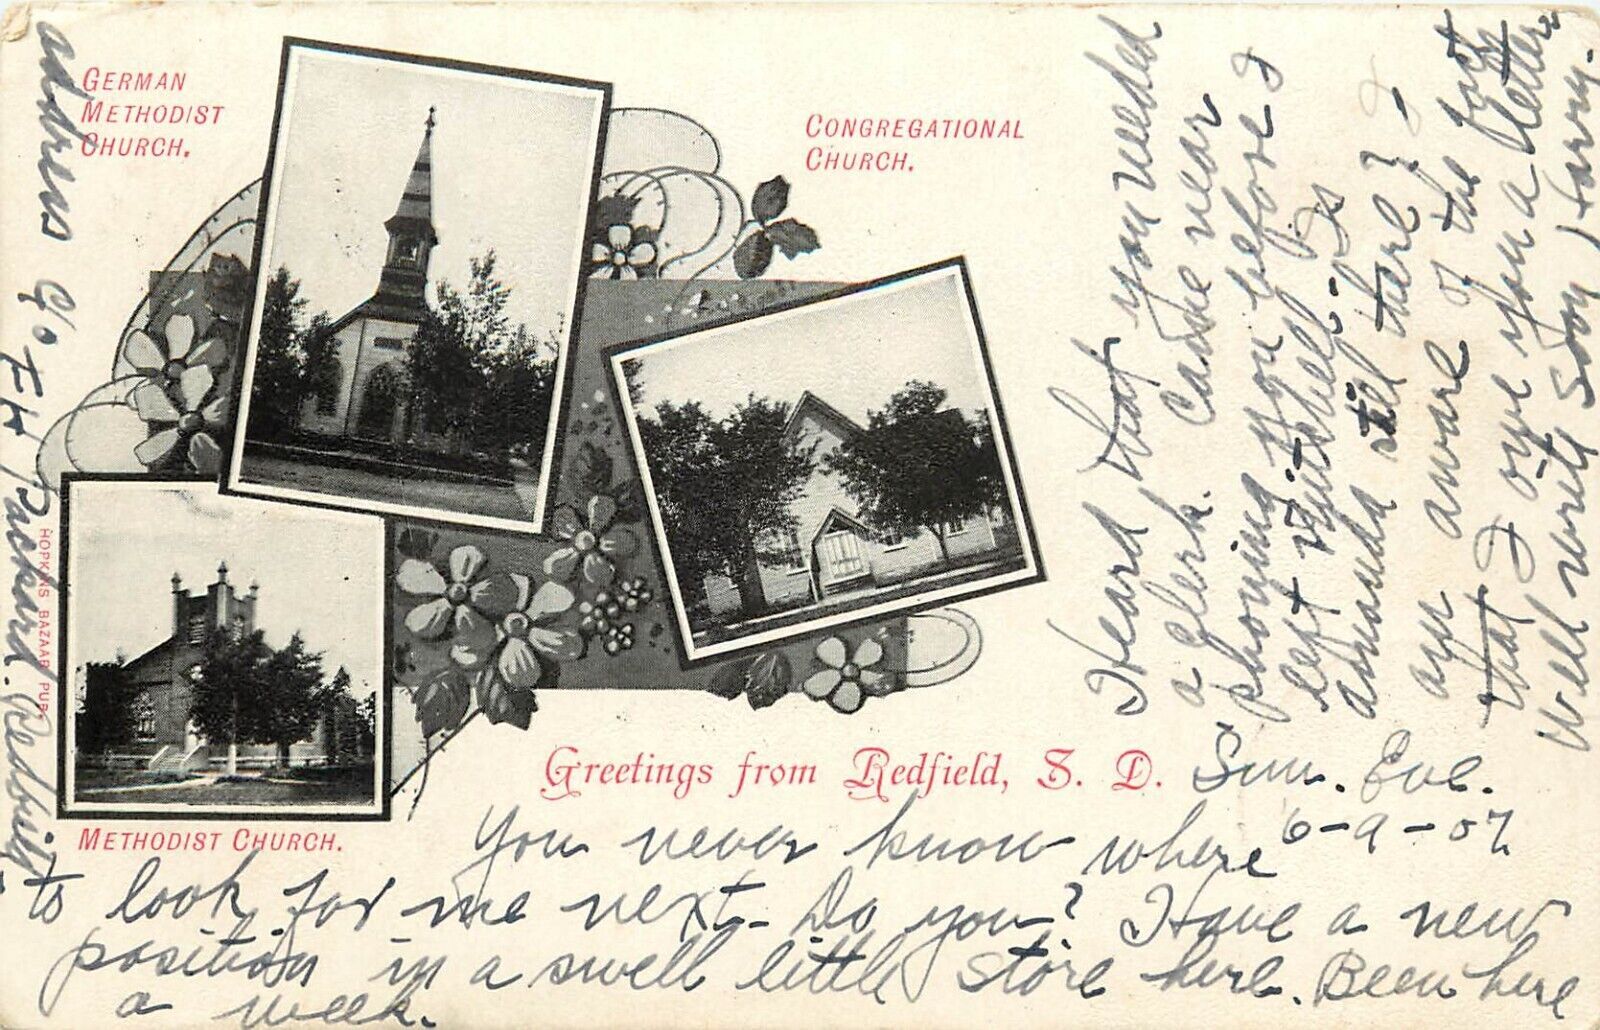 GERMAN
METHODIST
CHURCH.
CONGREGATIONAL
CHURCH.
METHODIST CHURCH.
HOPKINS BAZAAR PUB.
Greetings from Redfield, S. D.
Sun. Eve.
6-9-07
You never know where
to look for me next. Do you? Have a new
position in a swell little store here. Been here
a week.
Heard that you needed
a clerk. Came near
phoning you before I
left Mitchell. Is
Amanda still there? I
am aware of the fact
that I owe you a letter
Well write soon, Harry.
address c/o F.H. Packard. Redfield